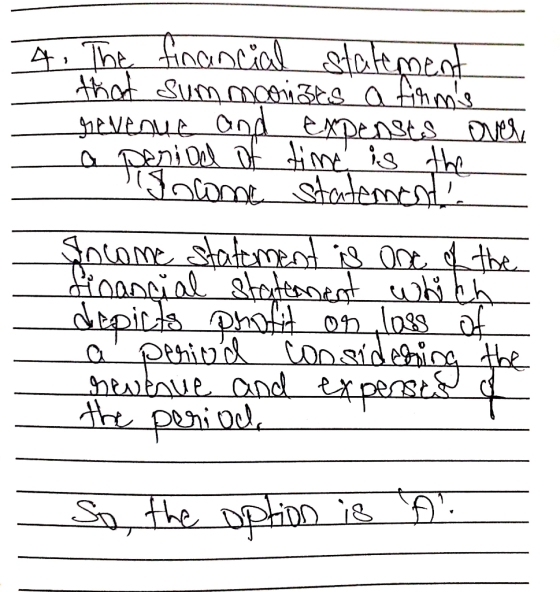 4. The financial statement
that summarizes a firm's
revenue and expenses over
a period of time is the
"Income statement'.
Income statement is one of the
financial statement which
depicts profit or loss of
a period considering the
revenue and expenses of
the period.
So, the option is 'A'.